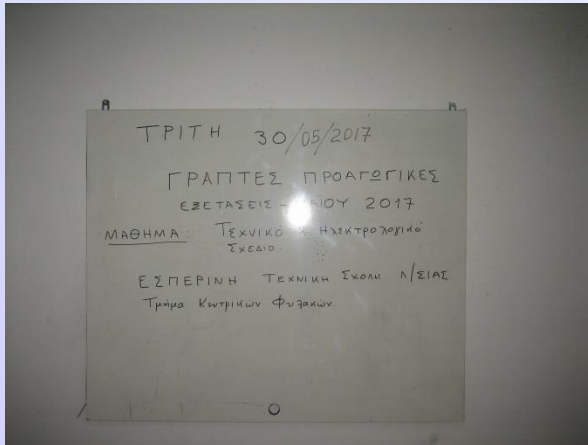 ΤΡΙΤΗ 30/05/2017
ΓΡΑΠΤΕΣ ΠΡΟΑΓΩΓΙΚΕΣ
ΕΞΕΤΑΣΕΙΣ - ΜΑΙΟΥ 2017
ΜΑΘΗΜΑ: ΤΕΧΝΙΚΟ & ΗΛΕΚΤΡΟΛΟΓΙΚΟ
ΣΧΕΔΙΟ.
ΕΣΠΕΡΙΝΗ ΤΕΧΝΙΚΗ ΣΧΟΛΗ Λ/ΣΙΑΣ
Τμήμα Κεντρικών Φυλακών.